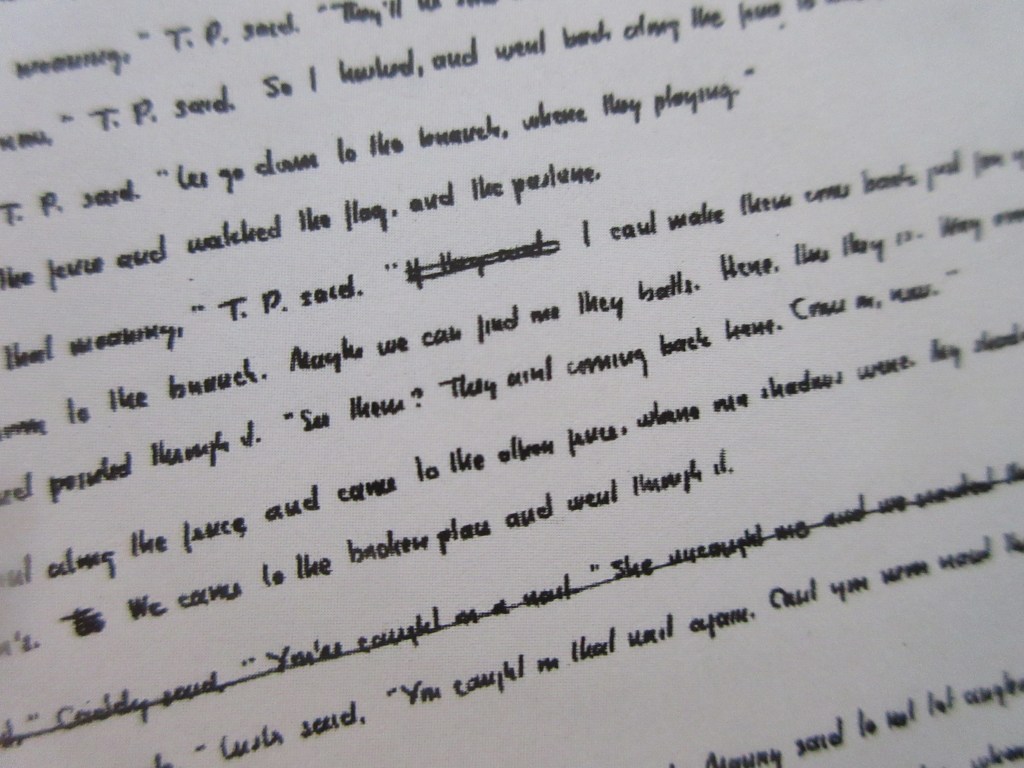 moaning," T. P. said. "They'll
" T. P. said. So I hushed, and went back along the fence to
T. P. said. "Les go down to the branch, where they playing."
the fence and watched the flag, and the pasture.
that moaning," T. P. said. " I cant make them come back just
to the branch. Maybe we can find one they balls. Here. Here they is. Way
pointed through it. "See them? They aint coming back here. Come on, now."
along the fence and came to the other fence, where our shadows were. My
We came to the broken place and went through it.
" Caddy said. "You're caught on a nail." She uncaught me and we crawled
" Luster said. "You caught on that nail again. Cant you never
Maury said to not let